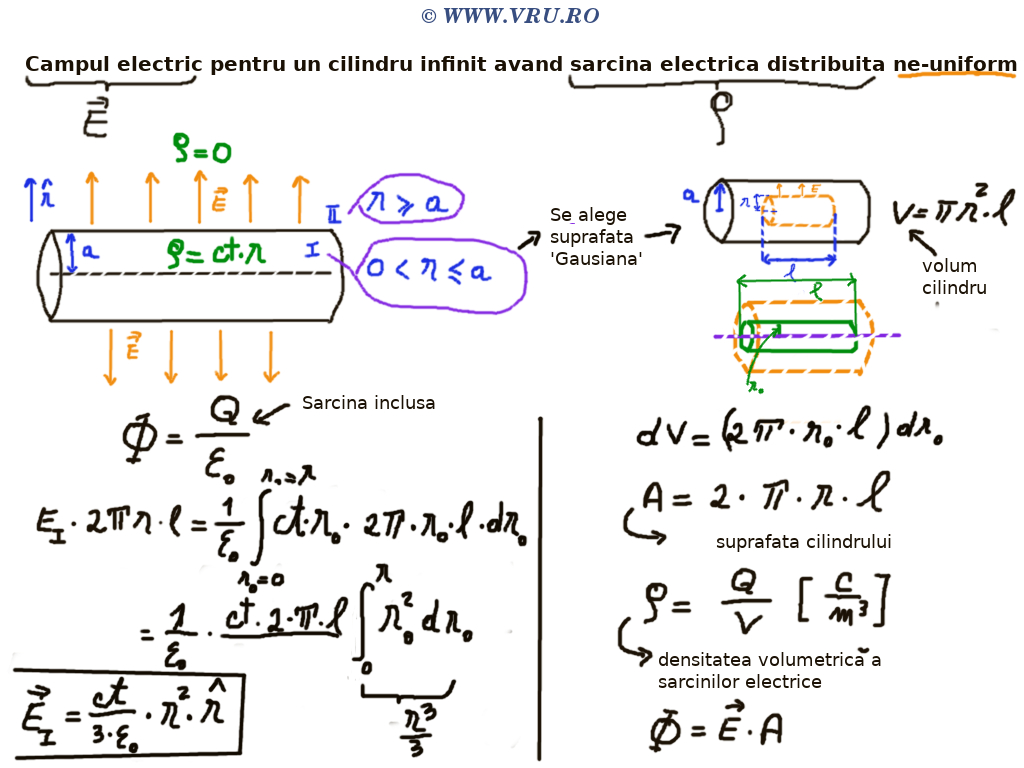 © WWW.VRU.RO
Campul electric pentru un cilindru infinit avand sarcina electrica distribuita ne-uniform
E⃗
ρ
ρ=0
r̂
E⃗
II
r ⩾ a
a
ρ= ct·r
I
0 < r ⩽ a
E⃗
Se alege
suprafata
'Gausiana'
a
r
E
l
V= πr²·l
volum
cilindru
l
r₀
Φ = Q/ε₀
Sarcina inclusa
E_I · 2πr·l = 1/ε₀ ∫_{r₀=0}^{r₀=r} ct·r₀ · 2π·r₀·l·dr₀
= 1/ε₀ · ct·2·π·l ∫_0^r r₀² dr₀
r³/3
E⃗_I = ct/(3·ε₀) · r²· r̂
dV= (2π·r₀·l)dr₀
A= 2·π·r·l
suprafata cilindrului
ρ= Q/V [C/m³]
densitatea volumetrică a
sarcinilor electrice
Φ = E⃗·A